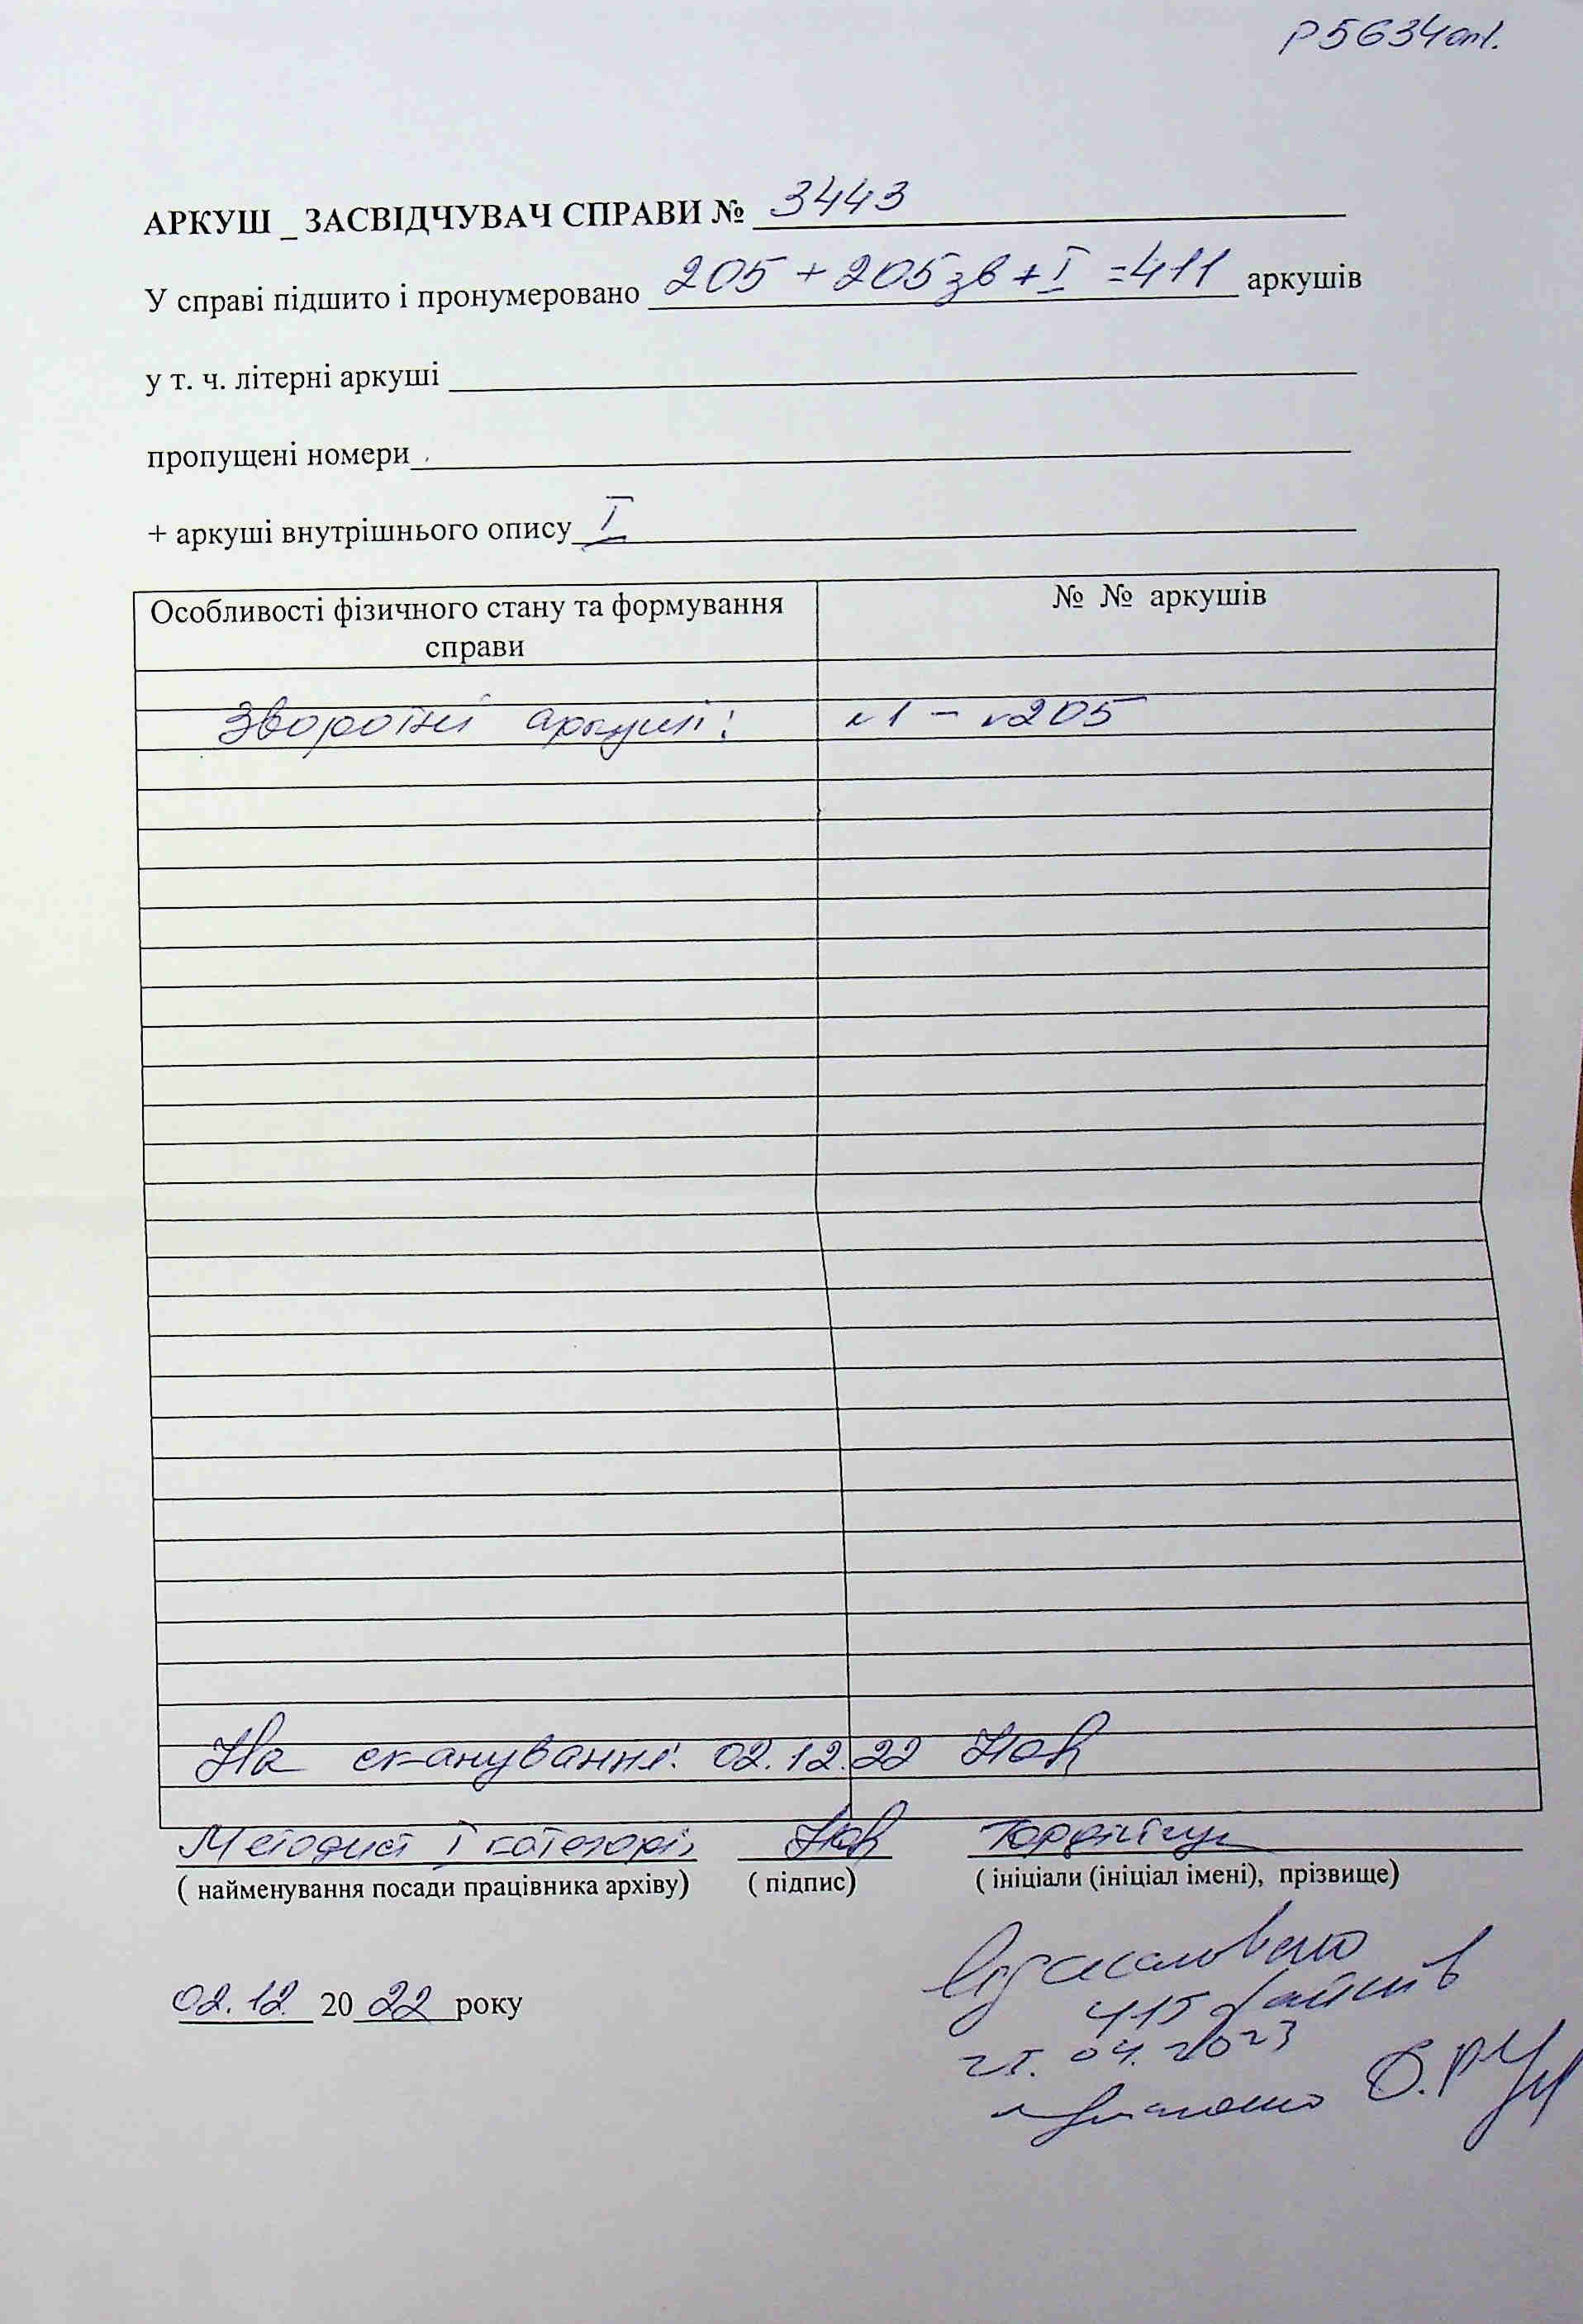 Р5634оп1.
АРКУШ _ ЗАСВІДЧУВАЧ СПРАВИ № 3443
У справі підшито і пронумеровано 205 + 205зв + I = 411 аркушів
у т. ч. літерні аркуші
пропущені номери
+ аркуші внутрішнього опису I
Особливості фізичного стану та формування справи
№ № аркушів
Зворотні аркуші: 1 – 205
На сканування: 02.12.22
Методист I категорії
( найменування посади працівника архіву) ( підпис) ( ініціали (ініціал імені), прізвище)
02.12. 20 22 року
415 файлів
25.04.2023